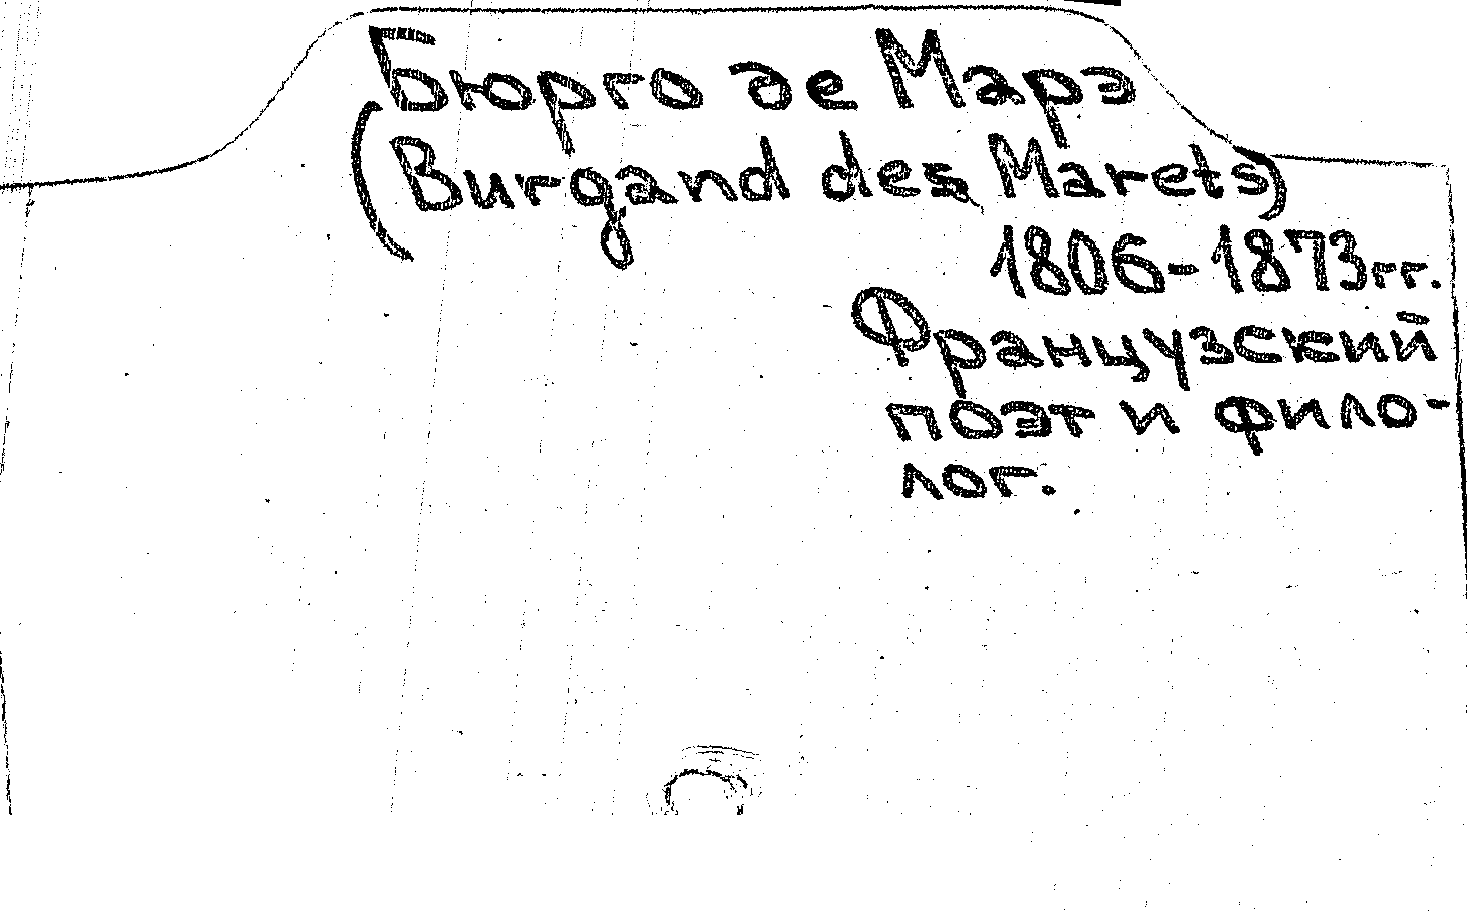 Бюрго де Марэ
(Burgand des Marets)
1806-1873гг.
Французский
поэт и фило-
лог.